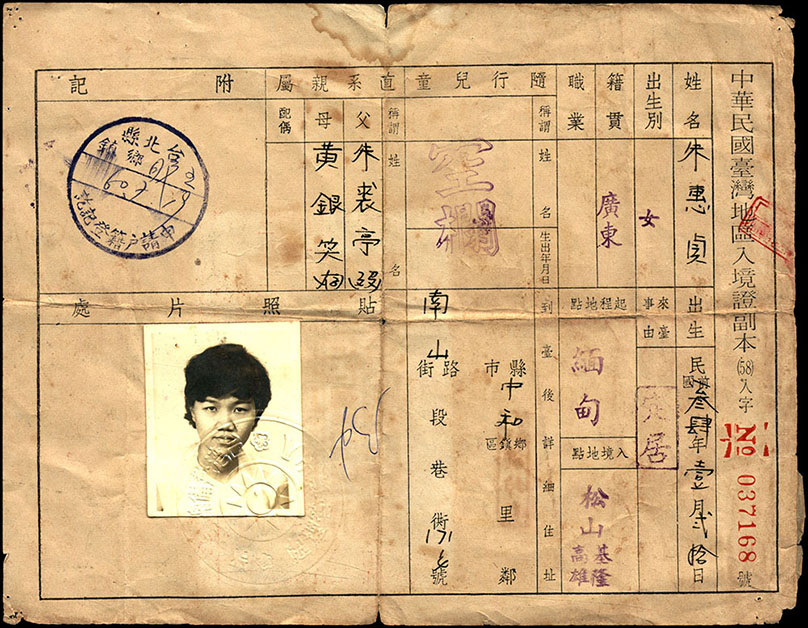 中華民國臺灣地區入境證副本(58)入字
No 037168 號
姓名
朱惠貞
出生
民國 叁肆年壹月貳拾日
出生別
女
來臺事由
定居
籍貫
廣東
職業
起程地點
緬甸
入境地點
松山
基隆
高雄
隨行兒童
稱謂
姓名
出生年月日
空欄
到臺後詳細住址
縣市
中和
鄉鎮區
里
鄰
南山
路街
段
巷
衖
171
號
直系親屬
稱謂
姓名
父
朱裘亭 歿
母
黃銀笑
配偶
附記
台北縣
鄉鎮
申請戶籍登記訖
貼照片處